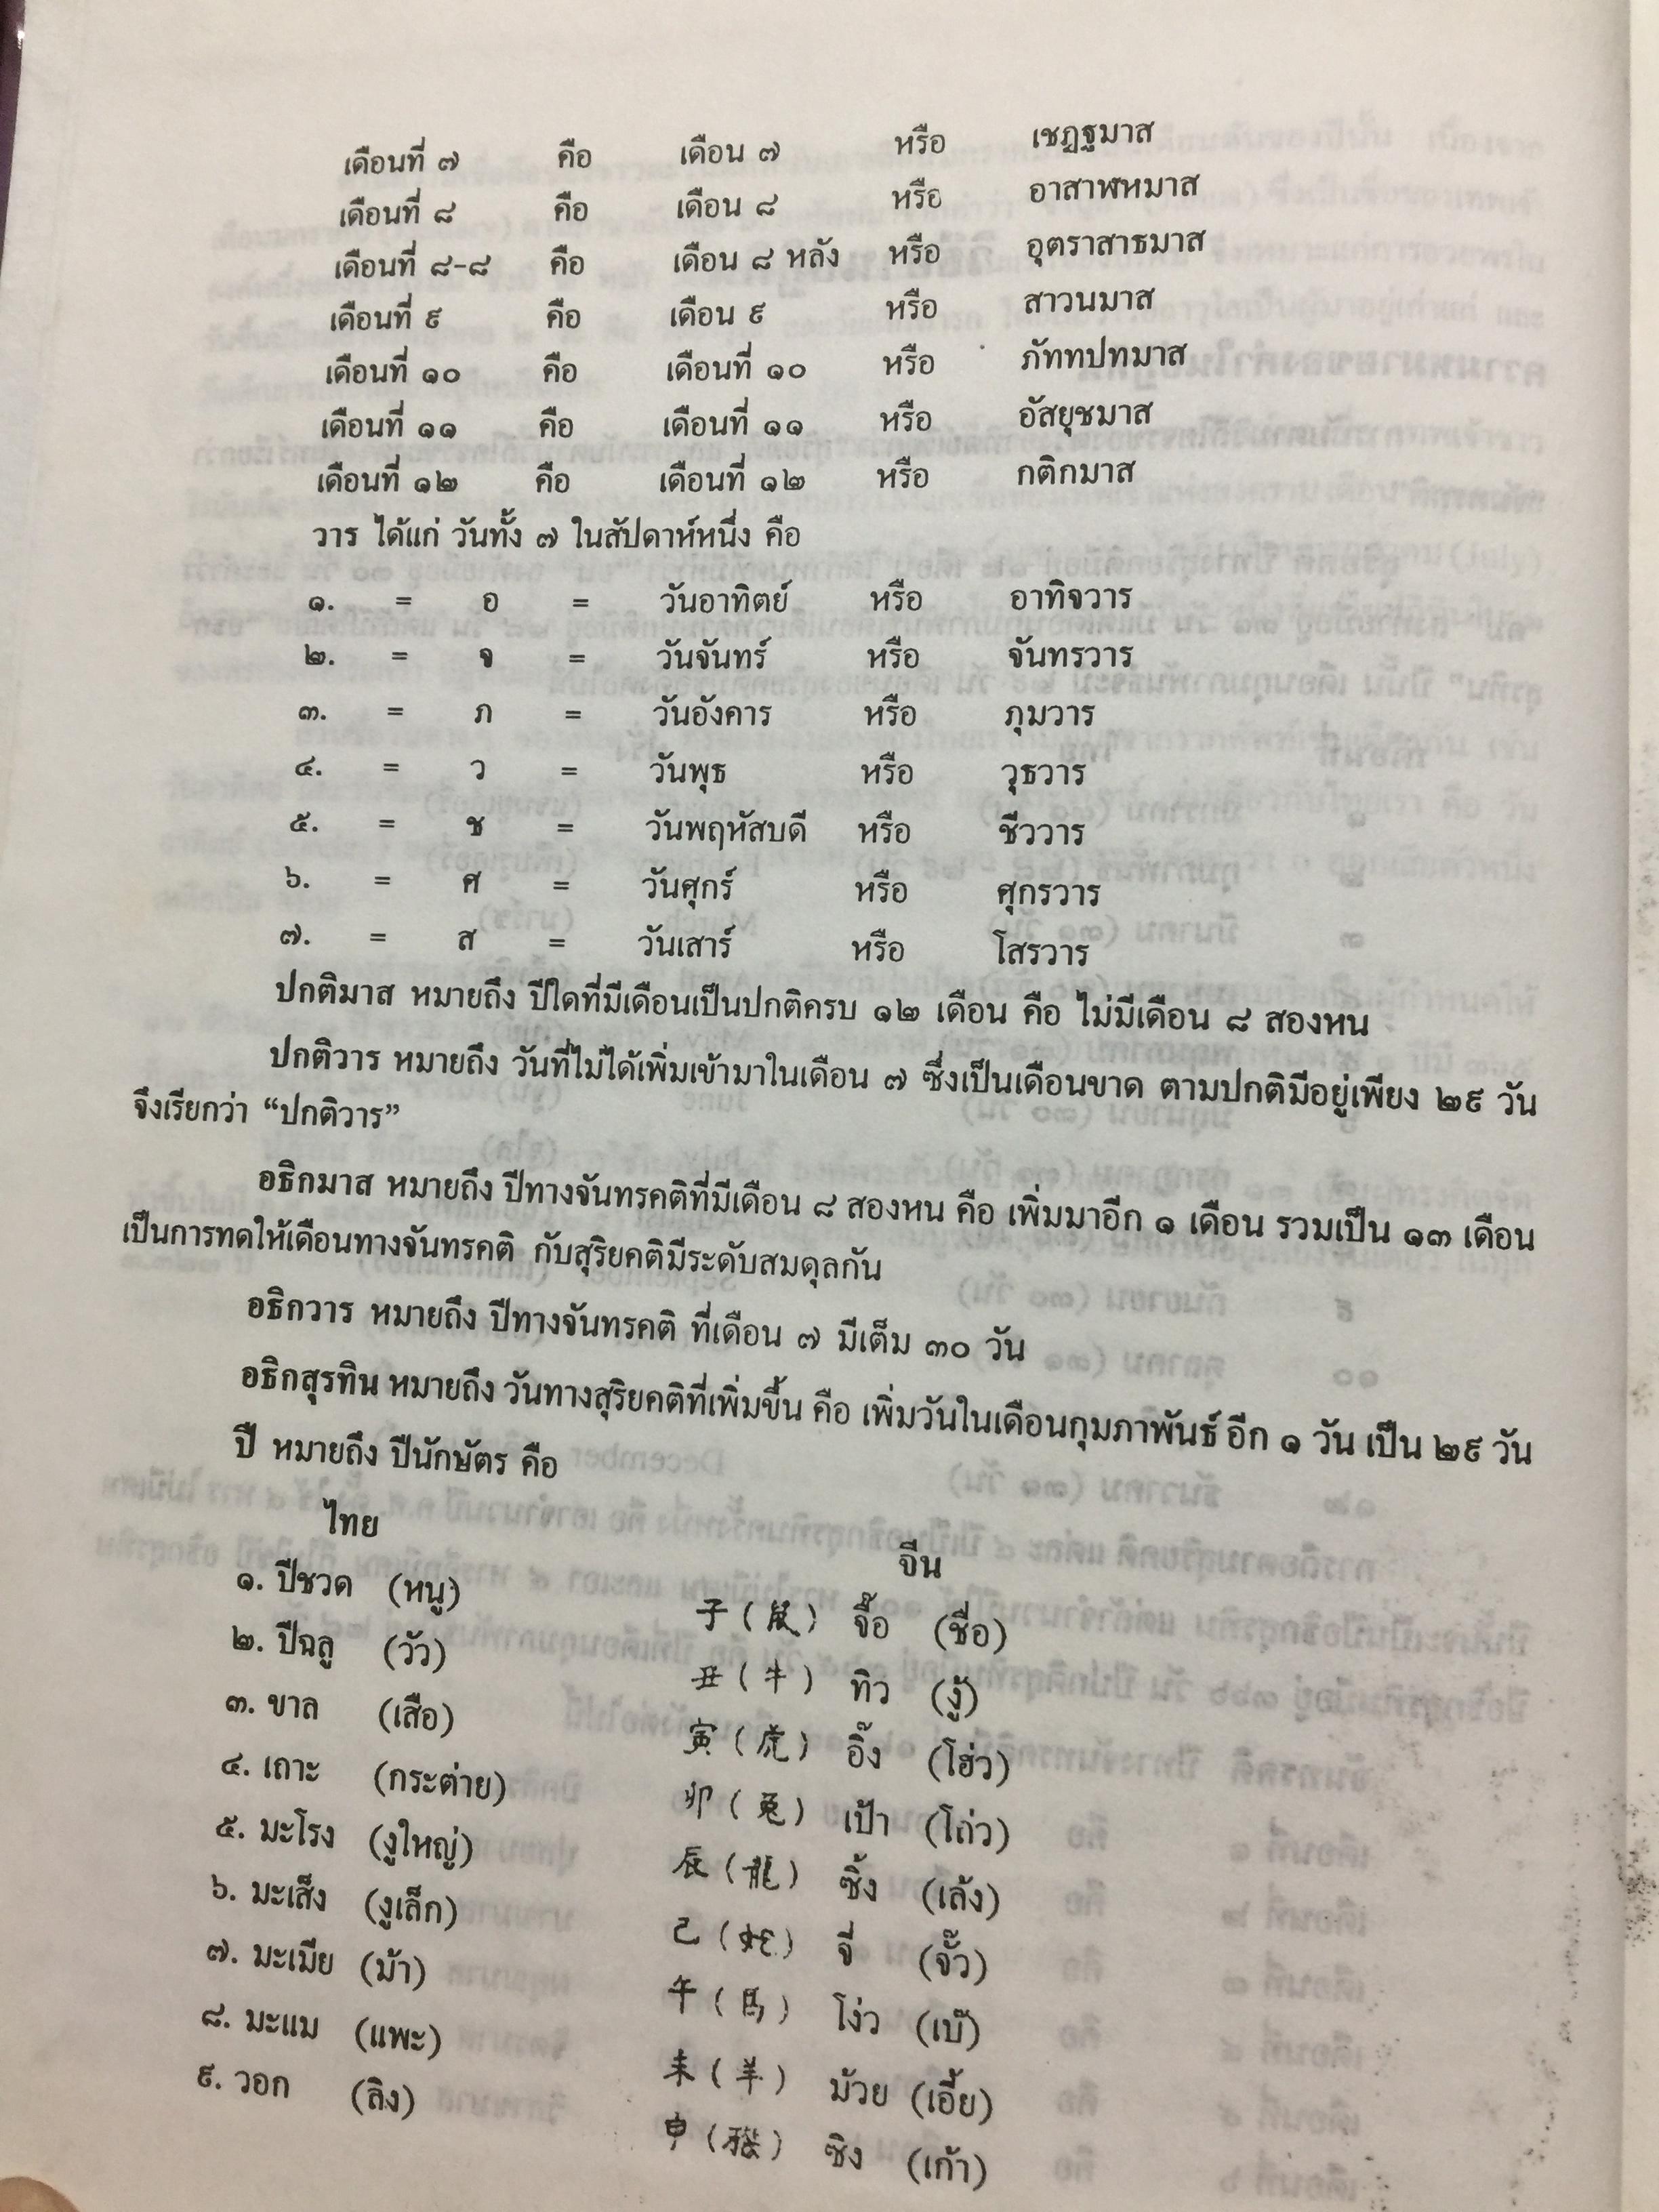 เดือนที่ ๗ คือ เดือน ๗ หรือ เชฏฐมาส
เดือนที่ ๘ คือ เดือน ๘ หรือ อาสาฬหมาส
เดือนที่ ๘-๘ คือ เดือน ๘ หลัง หรือ อุตราสาธมาส
เดือนที่ ๙ คือ เดือน ๙ หรือ สาวนมาส
เดือนที่ ๑๐ คือ เดือนที่ ๑๐ หรือ ภัททปทมาส
เดือนที่ ๑๑ คือ เดือนที่ ๑๑ หรือ อัสยุชมาส
เดือนที่ ๑๒ คือ เดือนที่ ๑๒ หรือ กติกมาส
วาร ได้แก่ วันทั้ง ๗ ในสัปดาห์หนึ่ง คือ
๑. = อ = วันอาทิตย์ หรือ อาทิจวาร
๒. = จ = วันจันทร์ หรือ จันทรวาร
๓. = ภ = วันอังคาร หรือ ภุมวาร
๔. = ว = วันพุธ หรือ วุธวาร
๕. = ช = วันพฤหัสบดี หรือ ชีววาร
๖. = ศ = วันศุกร์ หรือ ศุกรวาร
๗. = ส = วันเสาร์ หรือ โสรวาร
ปกติมาส หมายถึง ปีใดที่มีเดือนเป็นปกติครบ ๑๒ เดือน คือ ไม่มีเดือน ๘ สองหน
ปกติวาร หมายถึง วันที่ไม่ได้เพิ่มเข้ามาในเดือน ๗ ซึ่งเป็นเดือนขาด ตามปกติมีอยู่เพียง ๒๙ วัน
จึงเรียกว่า “ปกติวาร”
อธิกมาส หมายถึง ปีทางจันทรคติที่มีเดือน ๘ สองหน คือ เพิ่มมาอีก ๑ เดือน รวมเป็น ๑๓ เดือน
เป็นการทดให้เดือนทางจันทรคติ กับสุริยคติมีระดับสมดุลกัน
อธิกวาร หมายถึง ปีทางจันทรคติ ที่เดือน ๗ มีเต็ม ๓๐ วัน
อธิกสุรทิน หมายถึง วันทางสุริยคติที่เพิ่มขึ้น คือ เพิ่มวันในเดือนกุมภาพันธ์ อีก ๑ วัน เป็น ๒๙ วัน
ปี หมายถึง ปีนักษัตร คือ
ไทย จีน
๑. ปีชวด (หนู) 子 (鼠) จื๊อ (ชื่อ)
๒. ปีฉลู (วัว) 丑 (牛) ทิว (งู้)
๓. ขาล (เสือ) 寅 (虎) อิ๊ง (โฮ่ว)
๔. เถาะ (กระต่าย) 卯 (兎) เป้า (โถ่ว)
๕. มะโรง (งูใหญ่) 辰 (龍) ซิ้ง (เล้ง)
๖. มะเส็ง (งูเล็ก) 己 (蛇) จี่ (จั๊ว)
๗. มะเมีย (ม้า) 午 (馬) โง่ว (เบ๊)
๘. มะแม (แพะ) 未 (羊) ม้วย (เอี้ย)
๙. วอก (ลิง) 申 (猴) ซิง (เก้า)